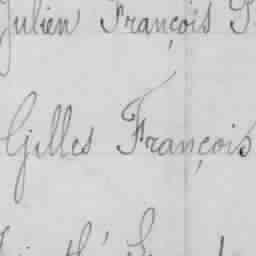 Julien François
Gilles François